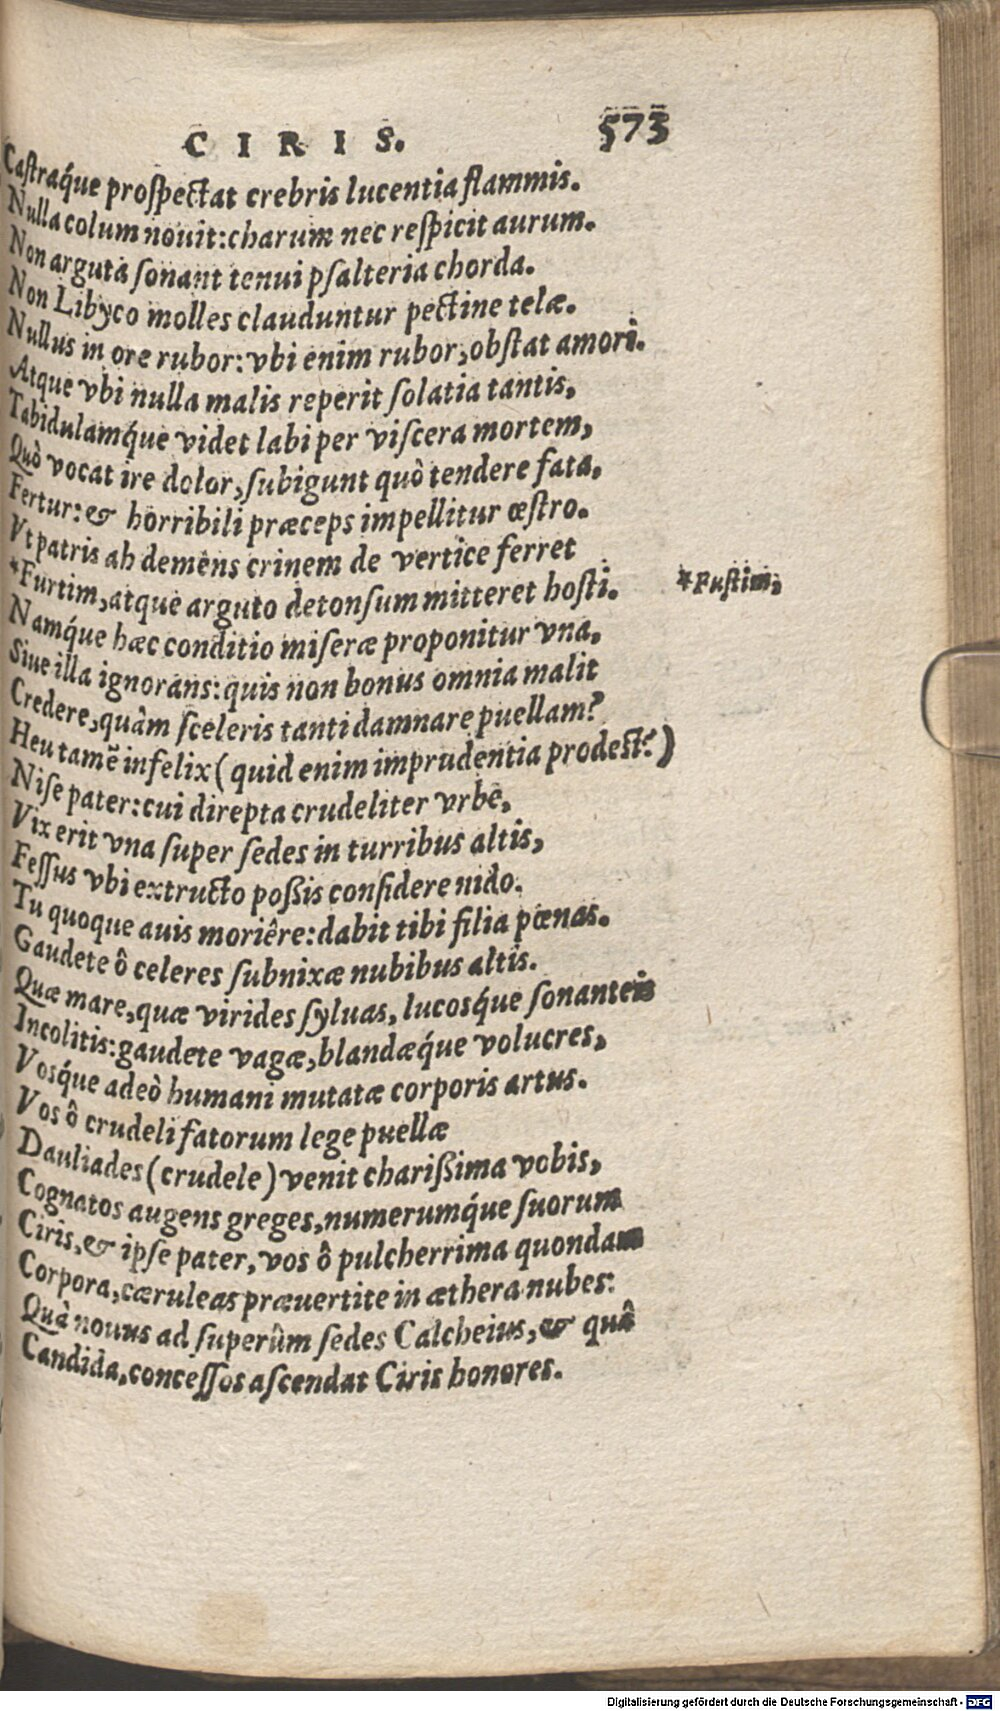 CIRIS. 573
Castraq́ue prospectat crebris lucentia flammis.
Nulla colum nouit: charum nec respicit aurum.
Non arguta sonant tenui psalteria chorda.
Non Libyco molles clauduntur pectine telæ.
Nullus in ore rubor: vbi enim rubor, obstat amori.
Atque vbi nulla malis reperit solatia tantis,
Tabidulamq́ue videt labi per viscera mortem,
Quò vocat ire dolor, subigunt quò tendere fata,
Fertur: & horribili præceps impellitur œstro.
Vt patris ah demens crinem de vertice ferret
*Furtim, atque arguto detonsum mitteret hosti. *Fustim,
Namq́ue hæc conditio miseræ proponitur vna,
Siue illa ignorans: quis non bonus omnia malit
Credere, quàm sceleris tanti damnare puellam?
Heu tamē infelix (quid enim imprudentia prodest?)
Nise pater: cui direpta crudeliter vrbe,
Vix erit vna super sedes in turribus altis,
Fessus vbi extructo poßis considere nido.
Tu quoque auis moriêre: dabit tibi filia pœnas.
Gaudete ô celeres subnixæ nubibus altis.
Quæ mare, quæ virides syluas, lucosq́ue sonanteis
Incolitis: gaudete vagæ, blandæq́ue volucres,
Vosq́ue adeò humani mutatæ corporis artus.
Vos ô crudeli fatorum lege puellæ
Dauliades (crudele) venit charißima vobis,
Cognatos augens greges, numerumq́ue suorum
Ciris, & ipse pater, vos ô pulcherrima quondam
Corpora, cæruleas præuertite in æthera nubes:
Quà nouus ad superûm sedes Calcheius, & quâ
Candida, concessos ascendat Ciris honores.
Digitalisierung gefördert durch die Deutsche Forschungsgemeinschaft - DFG